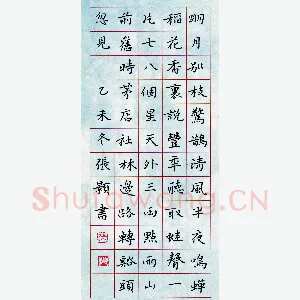 明月别枝驚鵲清風半夜鳴蟬
稻花香裏說豐年聽取蛙聲一
片七八個星天外三兩點雨山
前舊時茅店社林邊路轉谿頭
忽見
乙未冬張書
Shufawang.CN